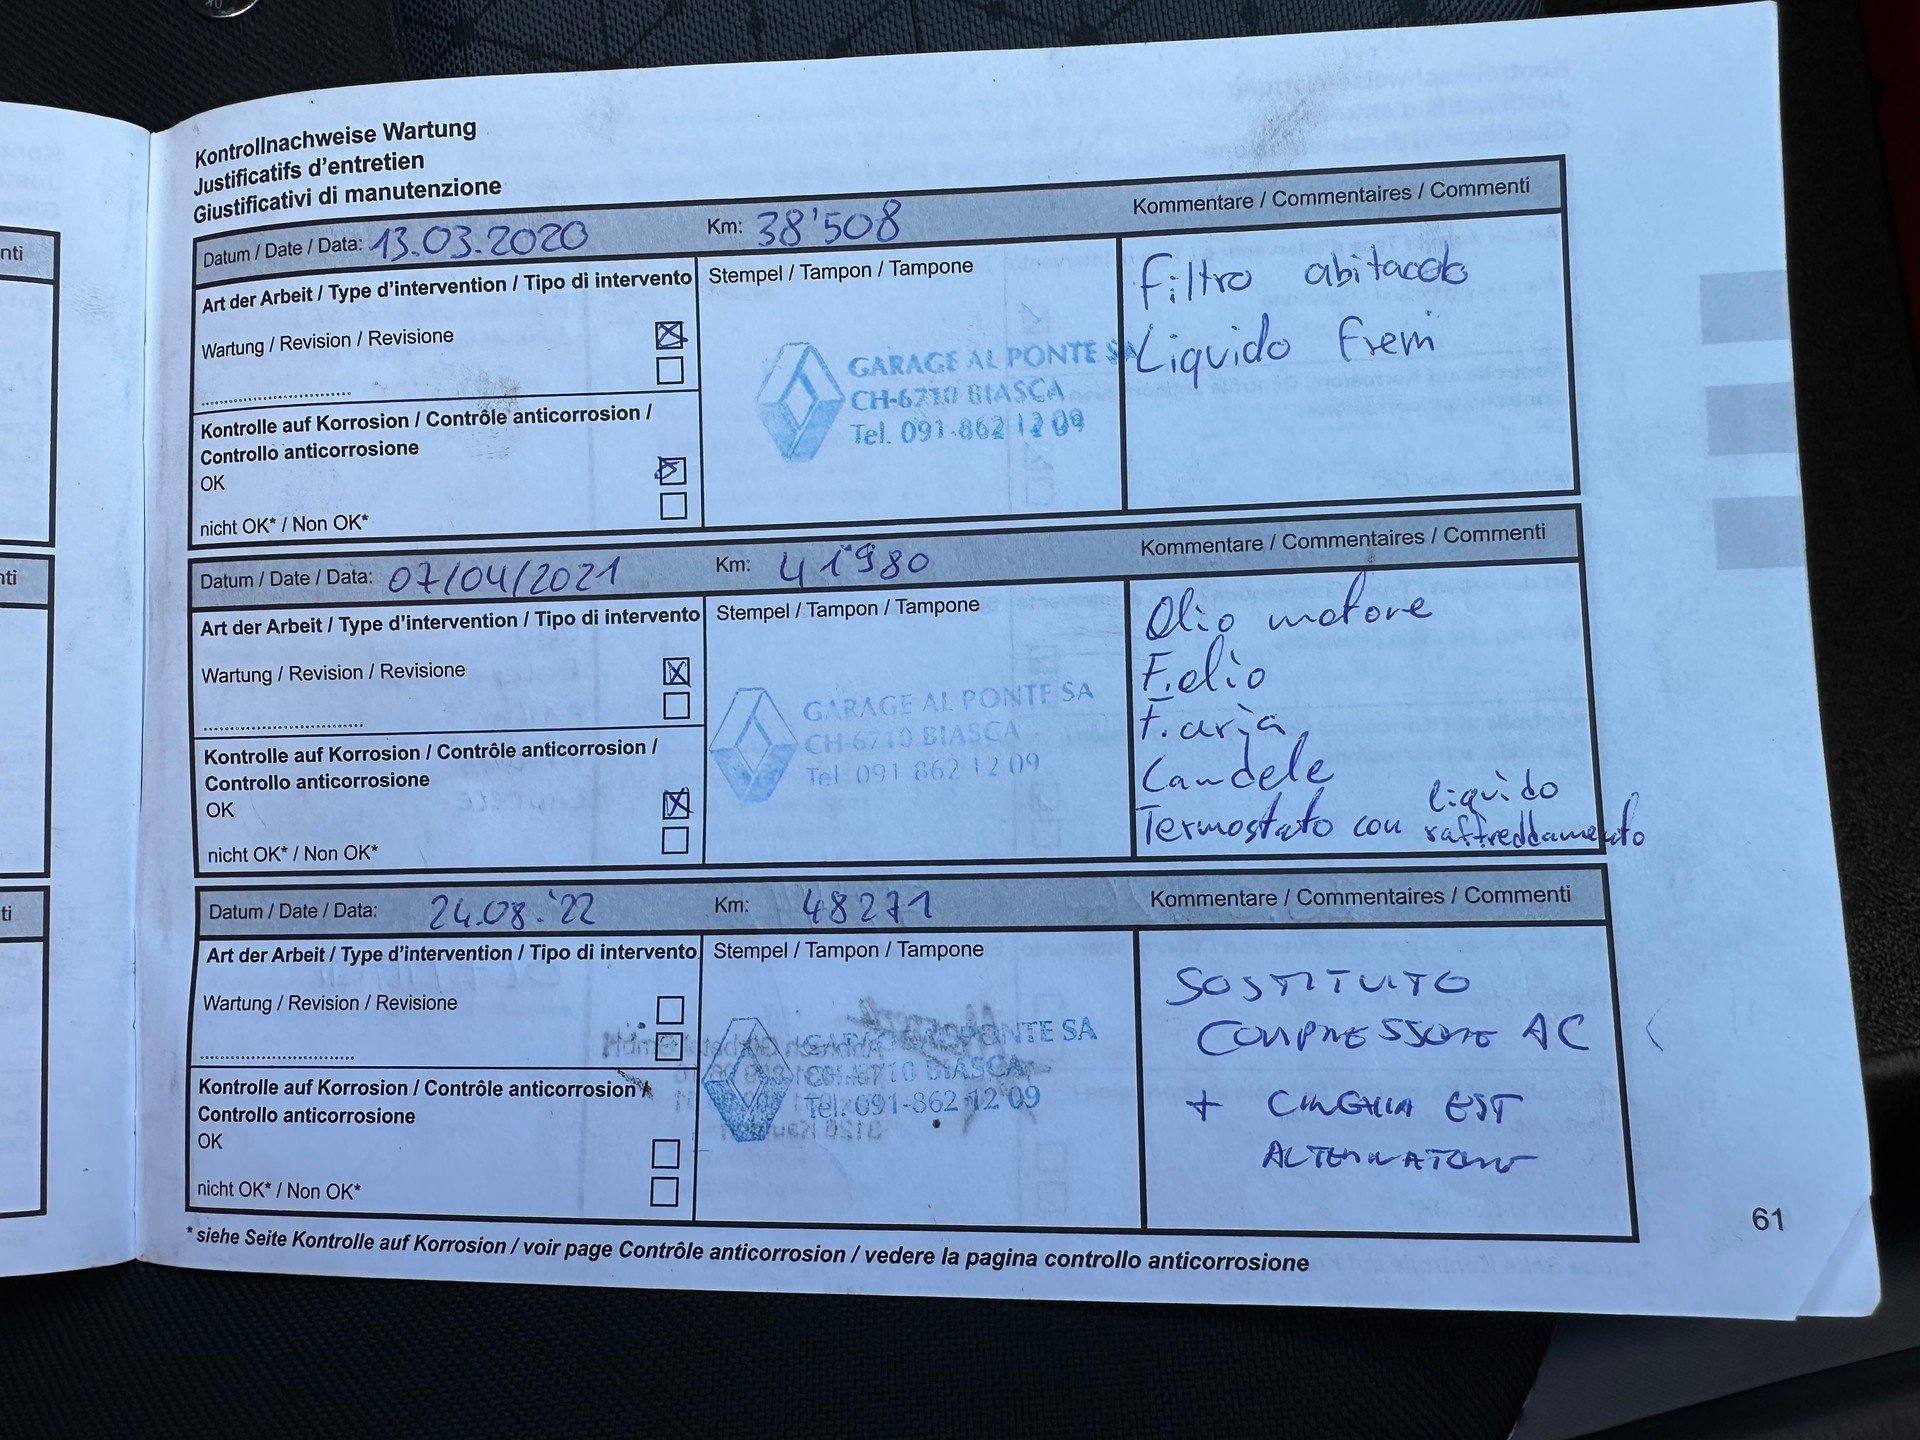 Kontrollnachweise Wartung
Justificatifs d'entretien
Giustificativi di manutenzione
Datum / Date / Data: 13.03.2020 Km: 38'508 Kommentare / Commentaires / Commenti
Art der Arbeit / Type d'intervention / Tipo di intervento
Stempel / Tampon / Tampone
Filtro abitacolo
Liquido freni
Wartung / Revision / Revisione
GARAGE AL PONTE SA
CH-6710 BIASCA
Tel. 091-862 12 09
Kontrolle auf Korrosion / Contrôle anticorrosion /
Controllo anticorrosione
OK
nicht OK* / Non OK*
Datum / Date / Data: 07/04/2021 Km: 41'980 Kommentare / Commentaires / Commenti
Art der Arbeit / Type d'intervention / Tipo di intervento
Stempel / Tampon / Tampone
Olio motore
F. olio
F. aria
Candele
Termostato con liquido
raffreddamento
Wartung / Revision / Revisione
GARAGE AL PONTE SA
CH-6710 BIASCA
Tel. 091 862 12 09
Kontrolle auf Korrosion / Contrôle anticorrosion /
Controllo anticorrosione
OK
nicht OK* / Non OK*
Datum / Date / Data: 24.08.'22 Km: 48271 Kommentare / Commentaires / Commenti
Art der Arbeit / Type d'intervention / Tipo di intervento
Stempel / Tampon / Tampone
SOSTITUITO
COMPRESSORE AC
+ CINGHIA EST
ALTERNATORE
Wartung / Revision / Revisione
GARAGE AL PONTE SA
CH-6710 BIASCA
Tel. 091-862 12 09
Kontrolle auf Korrosion / Contrôle anticorrosion /
Controllo anticorrosione
OK
nicht OK* / Non OK*
* siehe Seite Kontrolle auf Korrosion / voir page Contrôle anticorrosion / vedere la pagina controllo anticorrosione
61
nti
nti
ti